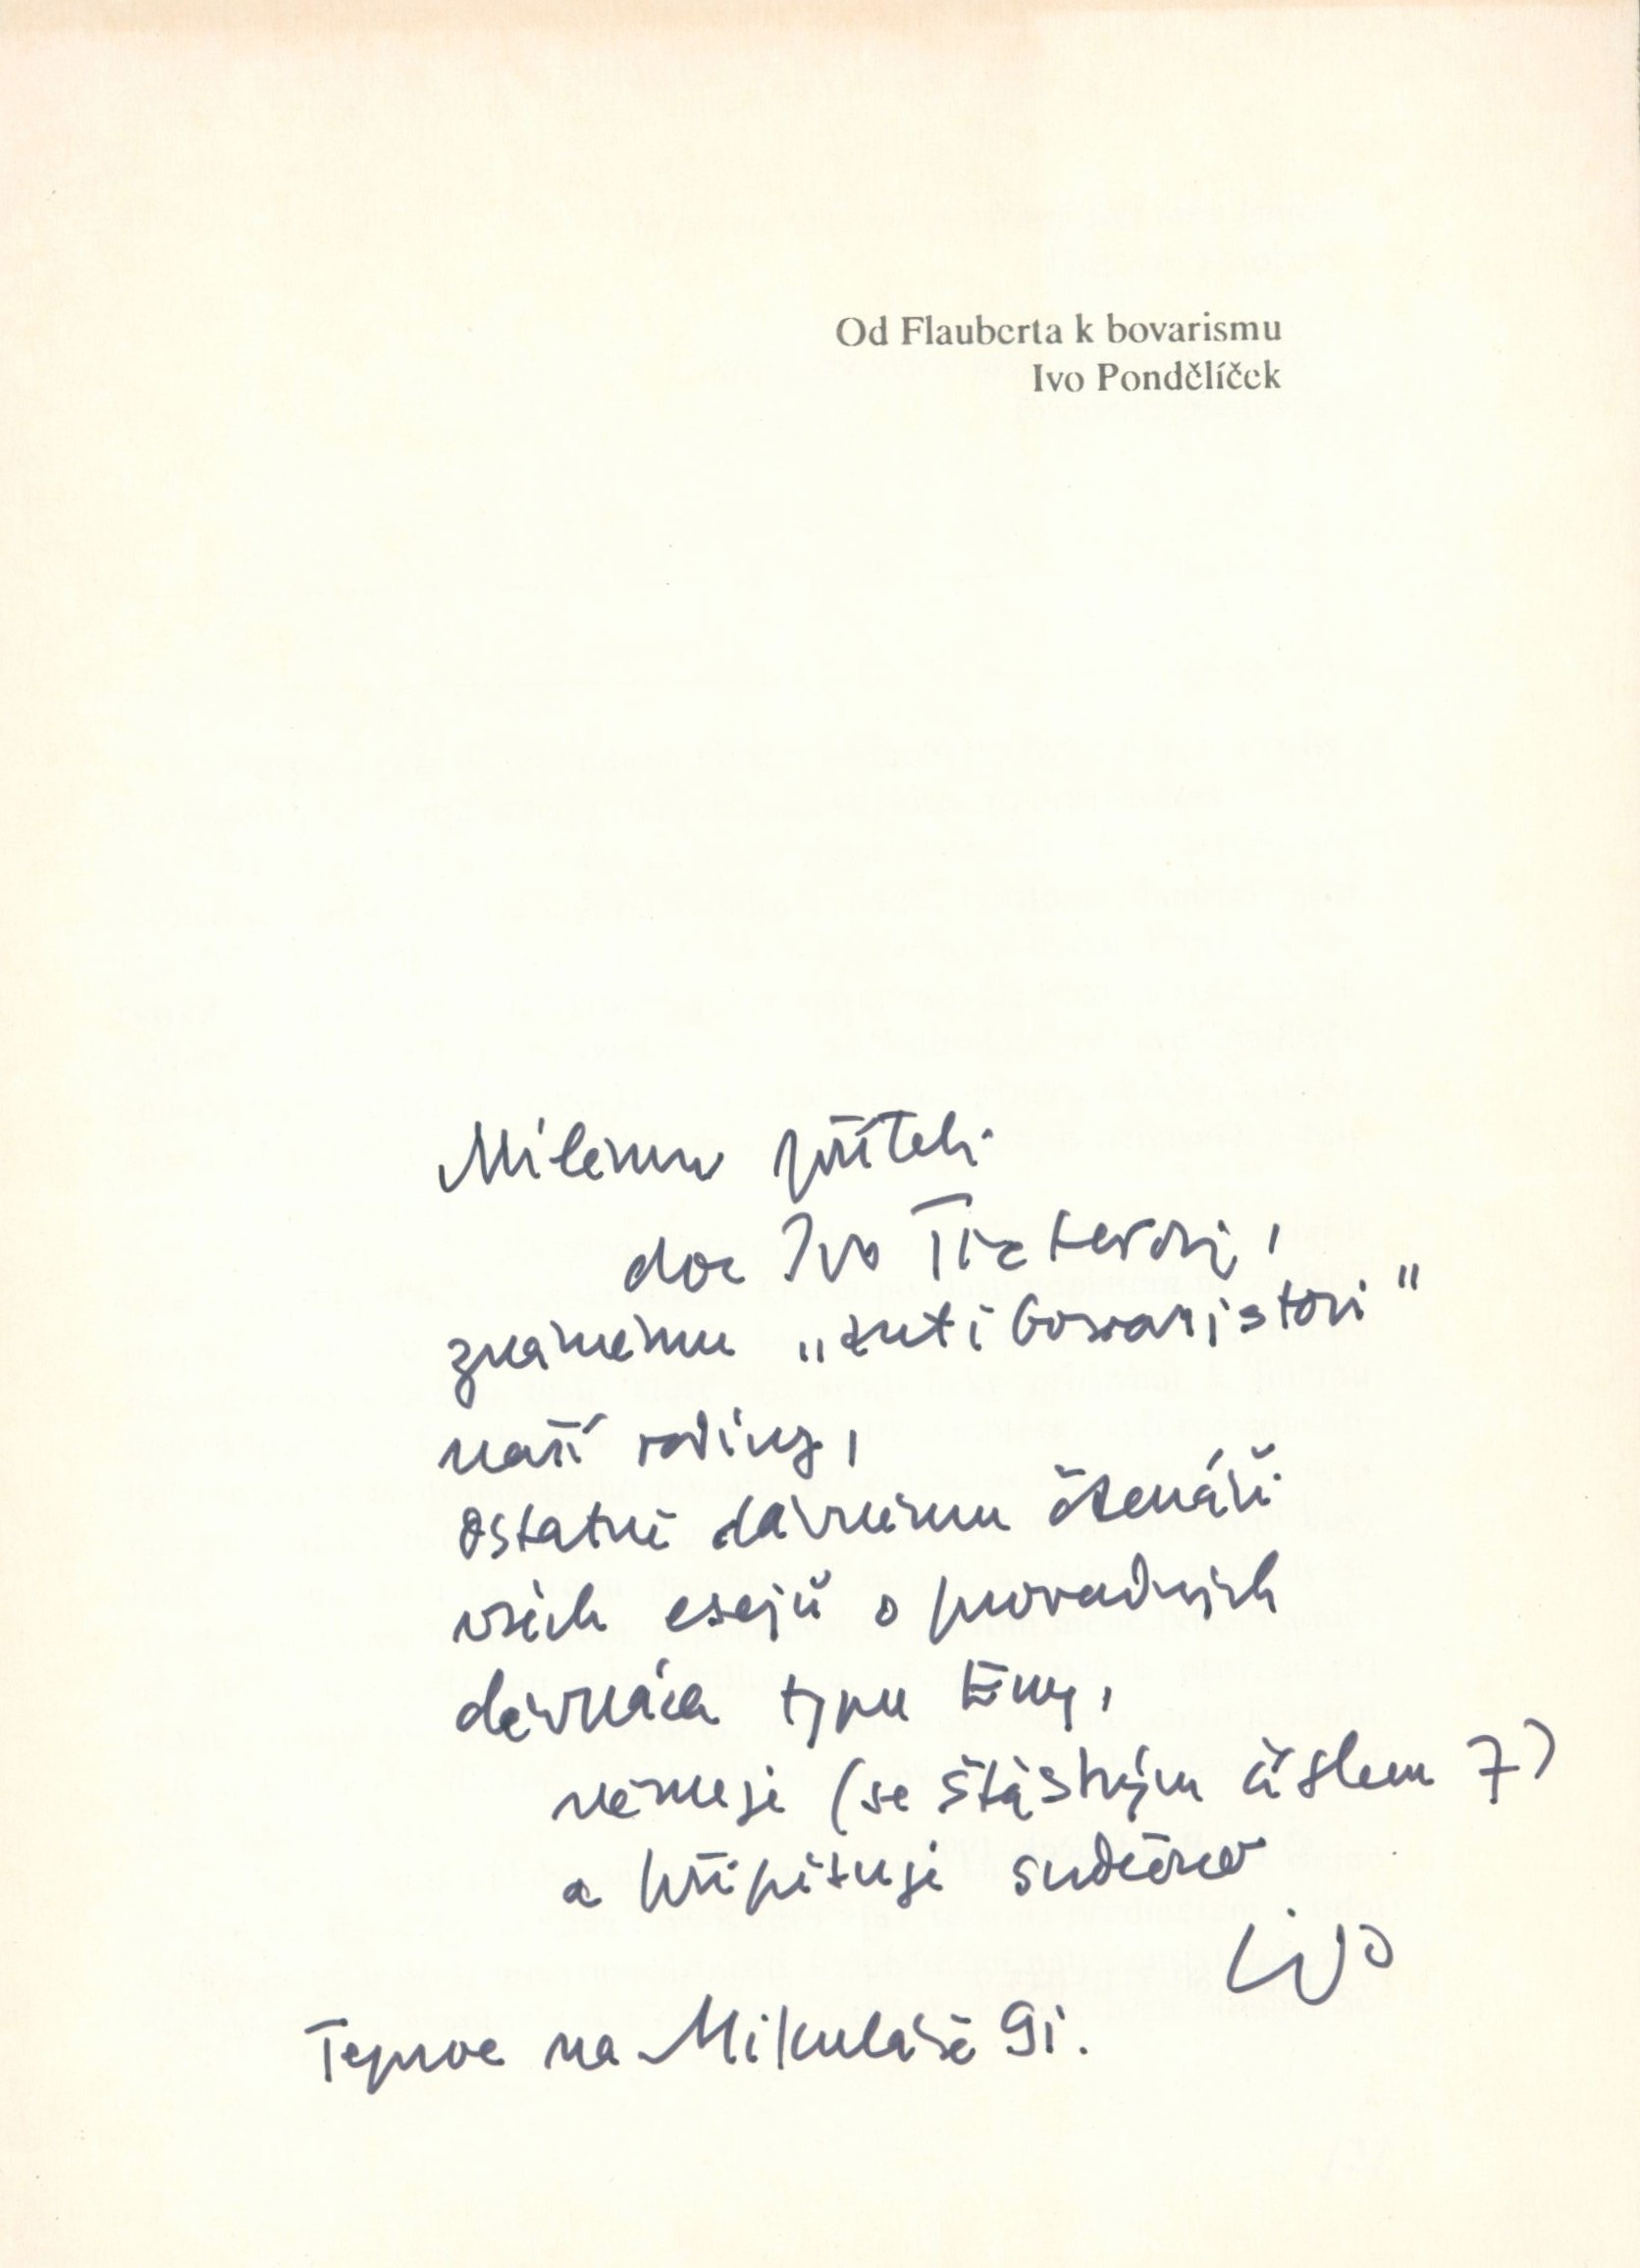 Od Flauberta k bovarismu
Ivo Pondělíček
Milému příteli
doc Ivo Treterovi,
známému „antibovaristovi"
naší rodiny,
ostatně dávnému čtenáři
všech esejů o proradných
děvnáca typu Emy,
věnuje (se šťastným číslem 7)
a připisuje srdečně
Ivo
Teprve na Mikuláše 91.